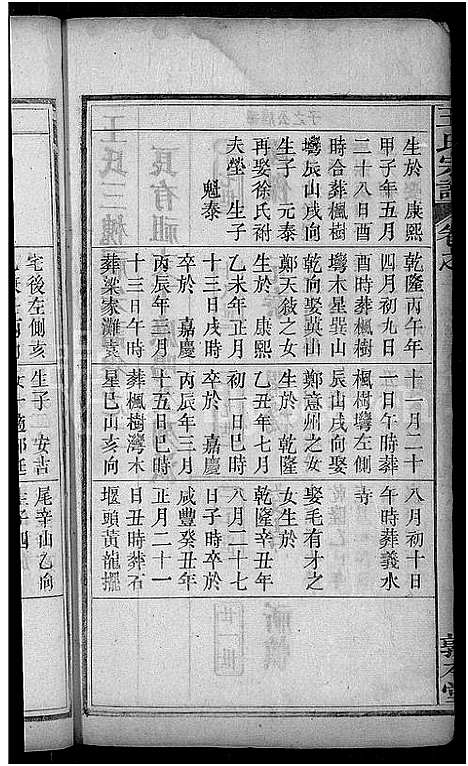 王氏宗譜
生於 康熙
甲子年五月
二十八日酉
時合葬楓樹
塆辰山戌向
生子 元泰
再娶徐氏祔
夫塋 生子
魁泰
乾隆丙午年
四月初九日
酉時葬楓樹
塆木星巽山
乾向娶英山
鄭天敘之女
生於 康熙
乙未年正月
十三日戌時
卒於 嘉慶
丙辰年三月
十三日午時
葬梁家灘袁
宅後左側亥
十一月二十
一日午時葬
楓樹塆左側
辰山戌向娶
鄭意州之女
生於 乾隆
乙丑年七月
初一日巳時
卒於 嘉慶
丙辰年三月
十五日巳時
葬楓樹灣木
星巳山亥向
生子 安吉
八月初十日
午時葬義水
寺
娶毛有才之
女生於
乾隆辛丑年
八月二十七
日子時卒於
咸豐癸丑年
正月二十一
日丑時葬石
堰頭黃龍擺
尾辛山乙向